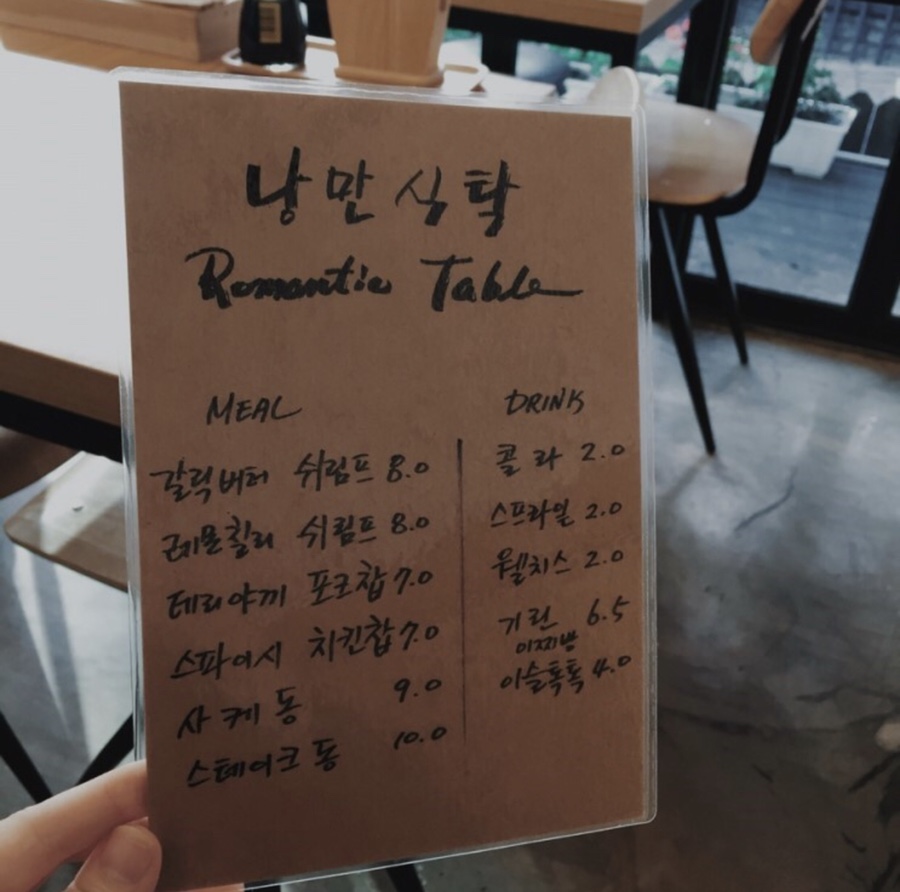 낭만식탁
Romantic Table
MEAL
갈릭버터 쉬림프 8.0
레몬칠리 쉬림프 8.0
테리야끼 포크찹 7.0
스파이시 치킨찹 7.0
사케동 9.0
스테이크동 10.0
DRINK
콜라 2.0
스프라일 2.0
웰치스 2.0
기린 6.5
이찌방
이슬톡톡 4.0